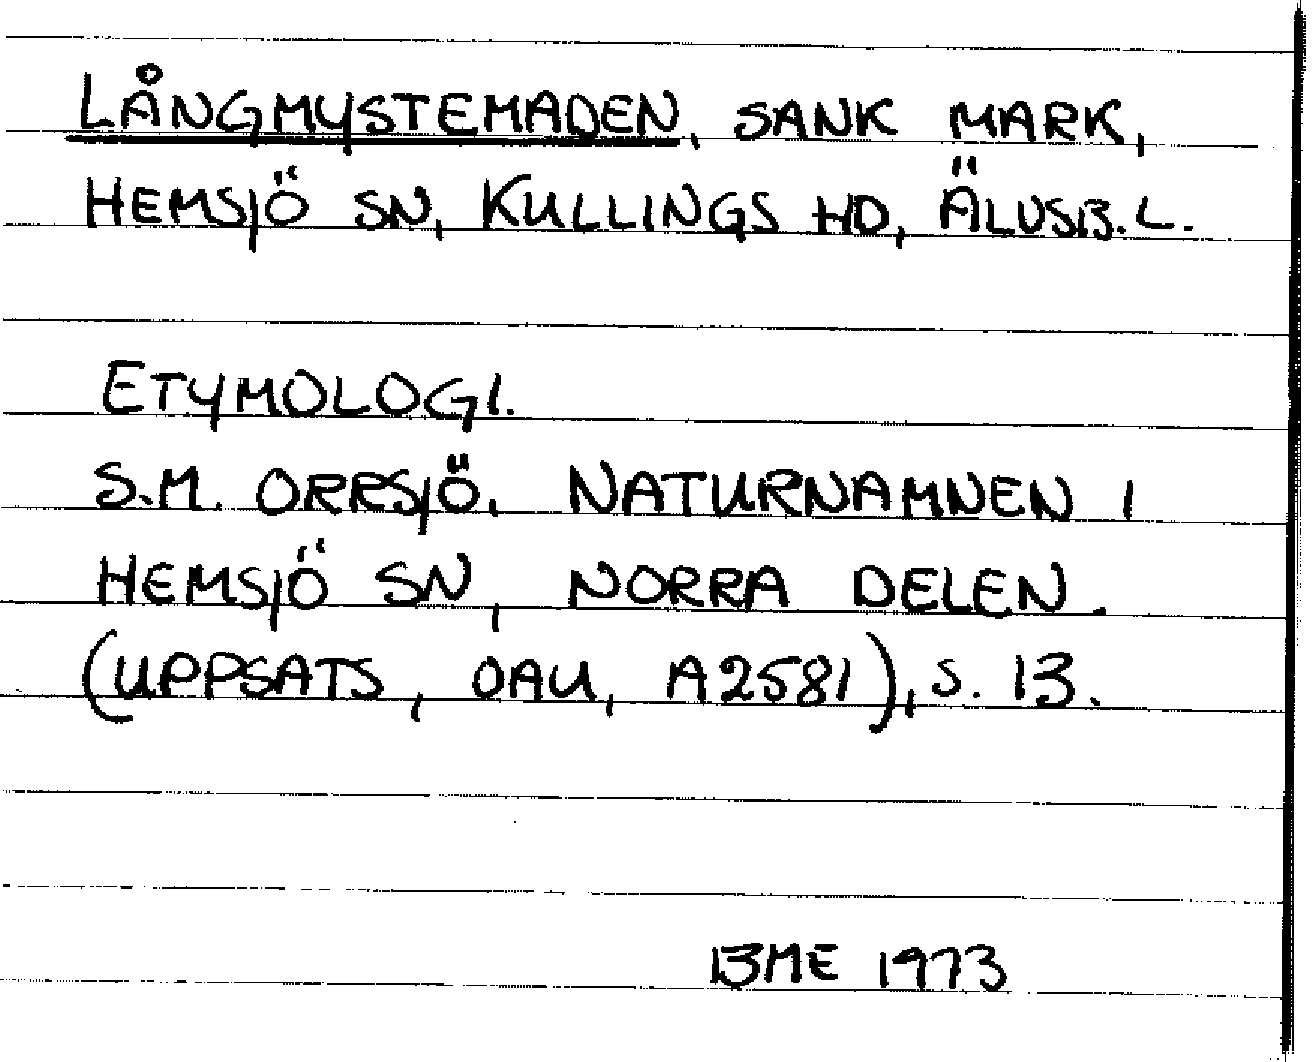 LÅNGMYSTEMADEN, SANK MARK,
HEMSJÖ SN, KULLINGS HD, ÄLVSB. L.
ETYMOLOGI.
S.M. ORRSJÖ, NATURNAMNEN I
HEMSJÖ SN, NORRA DELEN.
(UPPSATS, OAU, A2581), S. 13.
BME 1973